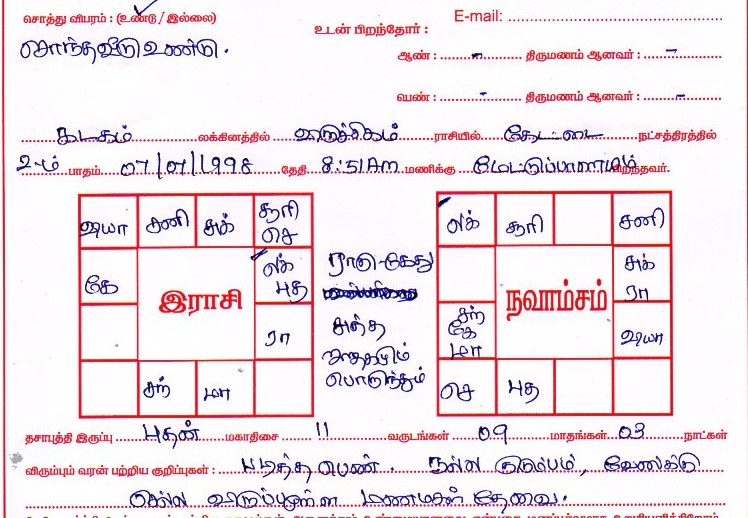 சொத்து விபரம் : (உண்டு / இல்லை)
E-mail:
சொந்தவீடு உண்டு.
உடன் பிறந்தோர் :
ஆண் : - திருமணம் ஆனவர் : -
பெண் : - திருமணம் ஆனவர் : -
கடகம் லக்கினத்தில் விருச்சிகம் ராசியில் கேட்டை நட்சத்திரத்தில்
2-ம் பாதம் 07/07/1998 தேதி 8:51Am மணிக்கு மேட்டுப்பாளையம் பிறந்தவர்.
வியா சனி சுக் சூரி செ
கே இராசி லக் புத
ரா
சந் மா
ராகு-கேது
சுத்த
ஜாதகமும்
பொருந்தும்
லக் சூரி சனி
நவாம்சம் சுக் ரா
சந் கே மா வியா
செ புத
தசாபுத்தி இருப்பு புதன் மகாதிசை 11 வருடங்கள் 09 மாதங்கள் 03 நாட்கள்
விரும்பும் வரன் பற்றிய குறிப்புகள் : படித்த பெண். நல்ல குடும்பம், வேலைக்கு
செல்ல விருப்பமுள்ள மணமகள் தேவை.